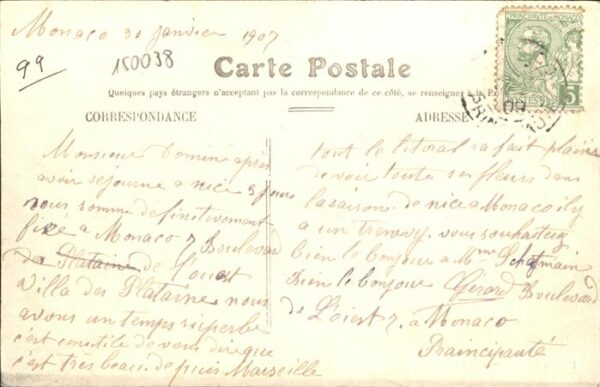 Monaco 30 janvier 1907
99
150038
PRINCIPAUTÉ DE MONACO
5
Carte Postale
Quelques pays étrangers n'acceptant pas la correspondance de ce côté, se renseigner à la
CORRESPONDANCE
ADRESSE
Monsieur Domini après
avoir séjourne a nice 3 jours
nous somme définitivement
fixé a Monaco 7 Boulevard
des Plataine de l'ouest
Villa des Platarne nous
avons un temps superbe
c'est inutile de vous dire que
c'est très beau depuis Marseille
tout le litoral sa fait plaisire
de voir toute ses fleurs dans
la saison. de nice a Monaco il y
a un trenvey. vous souhaiteg
bien le bonjour a Mme
Bien le bonjour Gérard Boulevard
de L'oiest 7. a Monaco
Praincipauté